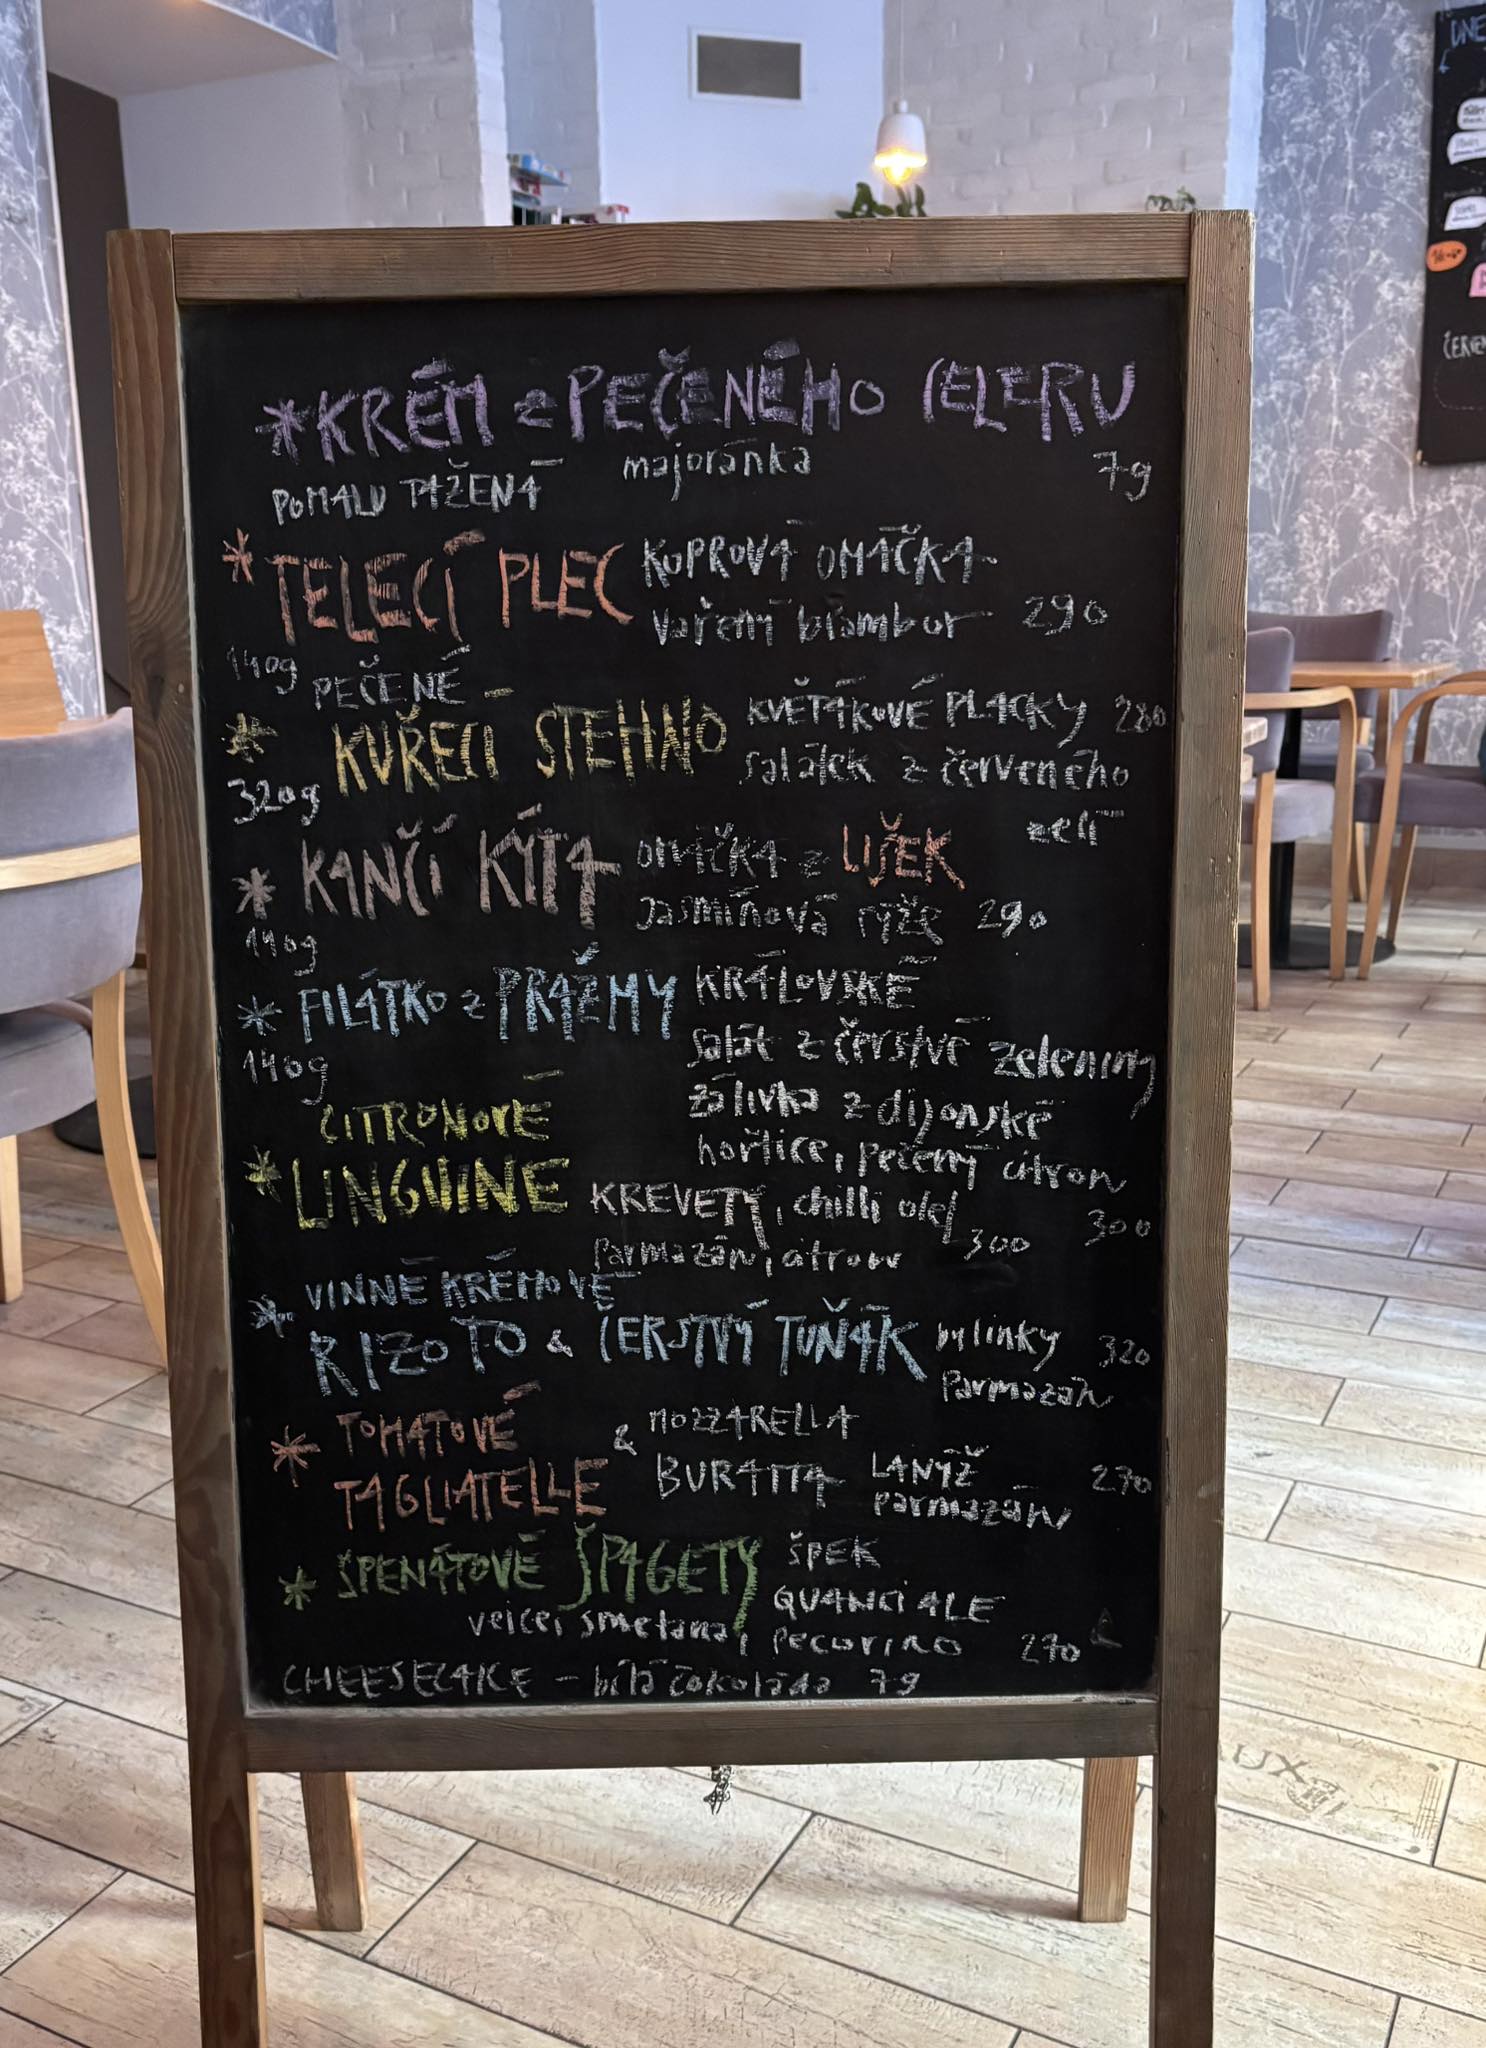 *KRÉM z PEČENÉHO CELERU
majoránka 79
POMALU TAŽENÁ
* TELECÍ PLEC KOPROVÁ OMÁČKA
vařený brambor 290
140g
PEČENÉ
* KUŘECÍ STEHNO KVĚTÁKOVÉ PLACKY 280
320g salátek z červeného
zelí
* KANČÍ KÝTA OMÁČKA z LIŠEK
140g jasmínová rýže 290
* FILÁTKO z PRAŽMY KRÁLOVSKÉ
140g salát z čerstvé zeleniny
zálivka z dijonské
hořčice, pečený citron
300
CITRONOVÉ
* LINGUINE KREVETY, chilli olej
parmazán, citron 300
VINNÉ KRÉMOVÉ
* RIZOTO & ČERSTVÝ TUŇÁK bylinky 320
parmazán
* TOMATOVÉ & MOZZARELLA
TAGLIATELLE BURATTA LANÝŽ 270
parmazán
* ŠPENÁTOVÉ ŠPAGETY ŠPEK
QUANCIALE
vejce, smetana, pecorino 270
CHEESECAKE - bílá čokoláda 79